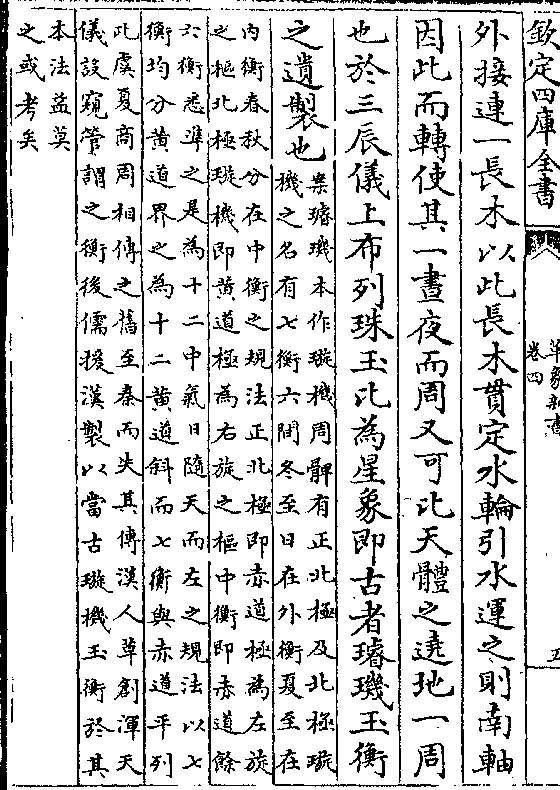 欽定四庫全書
革象新書
卷四
五
外接連一長木以此長木貫定水輪引水運之則南軸
因此而轉使其一晝夜而周又可比天體之遶地一周
也於三辰儀上布列珠玉比為星象即古者璿璣玉衡
之遺製也
案璿璣本作璇機周髀有正北極及北極璇
機之名有七衡六間冬至日在外衡夏至在
內衡春秋分在中衡之規法正北極即赤道極為左旋
之樞北極璇機即黃道極為右旋之樞中衡即赤道餘
六衡悉準之是為十二中氣日隨天而左之規法以七
衡均分黃道界之為十二黃道斜而七衡與赤道平列
此虞夏商周相傳之舊至秦而失其傳漢人草創渾天
儀設窺管謂之衡後儒援漢製以當古璇機玉衡於其
本法益莫
之或考矣